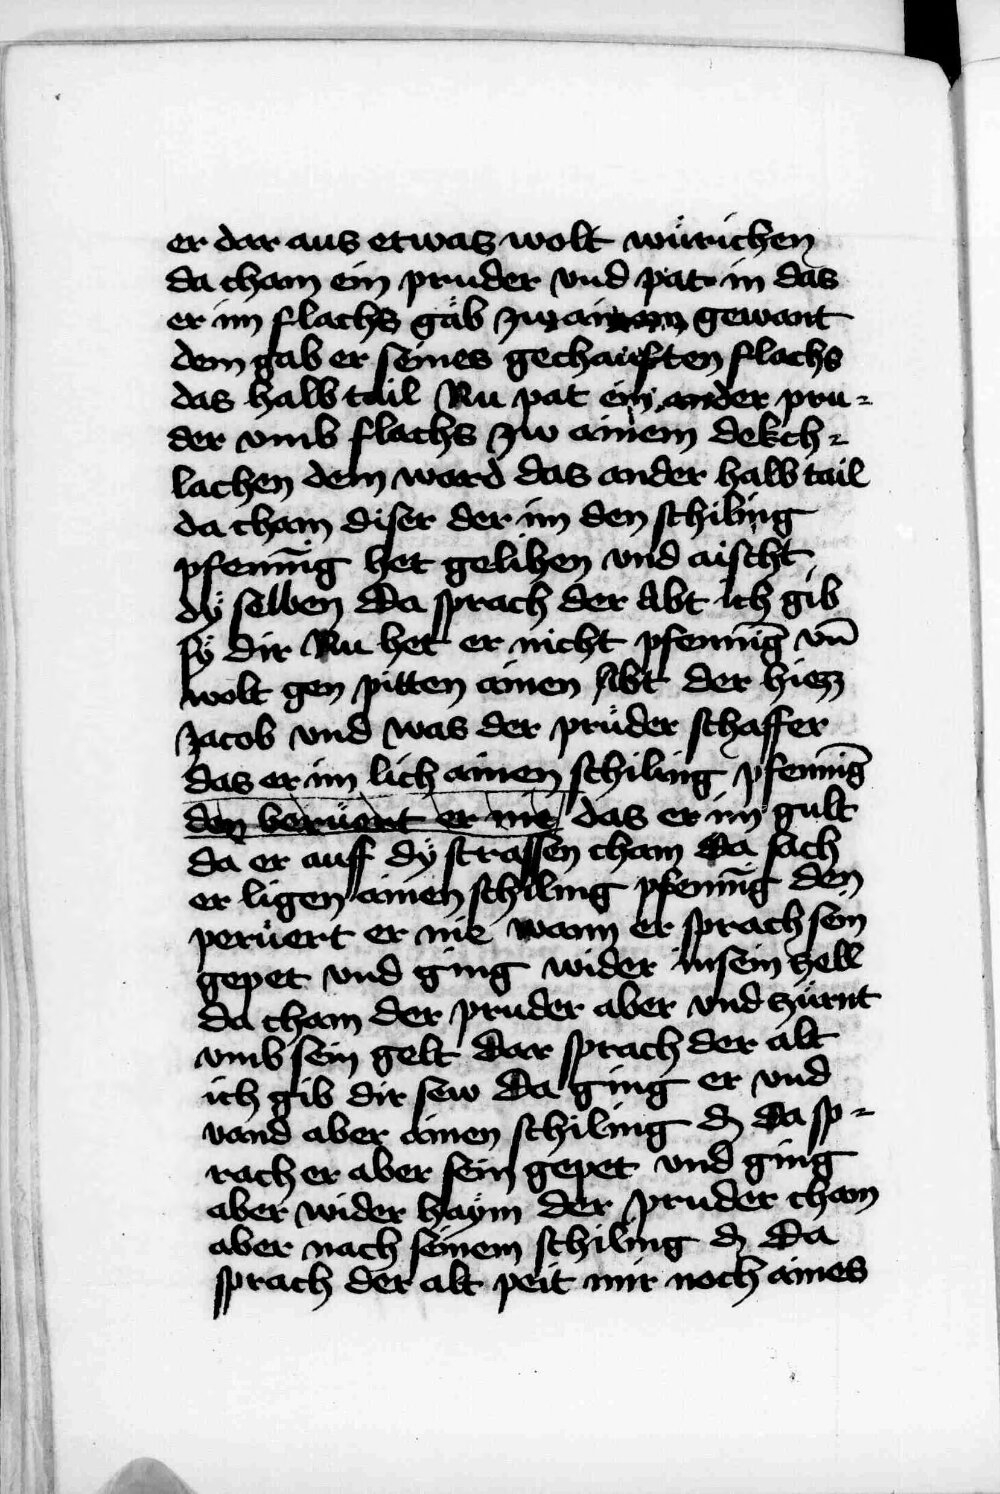 er dar aus etwas wolt würichen
da cham ein pruder vnd pat in das
er im flachs gäb zw ainem gewant
dem gab er seines gechauften flachs
das halb tail Nu pat ein ander pru-
der vmb flachs zw ainem dekch-
lachen dem ward das ander halb tail
da cham diser der im den schiling
pfenni̅g het gelihen vnd aischt
dÿ selben Da sprach der Abt ich gib
sÿ dir Nu het er nicht pfennig̅ vn̅
wolt gen pitten ainen Abt der hiezz
Jacob vnd was der prüder schaffer
das er im lich ainen schiling pfennig̅
den berüert er nie das er im gült
da er auff dÿ strassen cham Da sach
er ligen ainen schiling pfenni̅g den
perüert er nie wann er sprach sein
gepet vnd ging wider in sein zell
da cham der pruder aber vnd zürnt
vmb sein gelt Dar sprach der alt
ich gib dir sew Da ging er vnd
vand aber ainen schiling ₰ Da sp-
rach er aber sein gepet vnd ging
aber wider haÿm der pruder cham
aber nach seinem schiling ₰ Da
sprach der alt peit mir noch aines